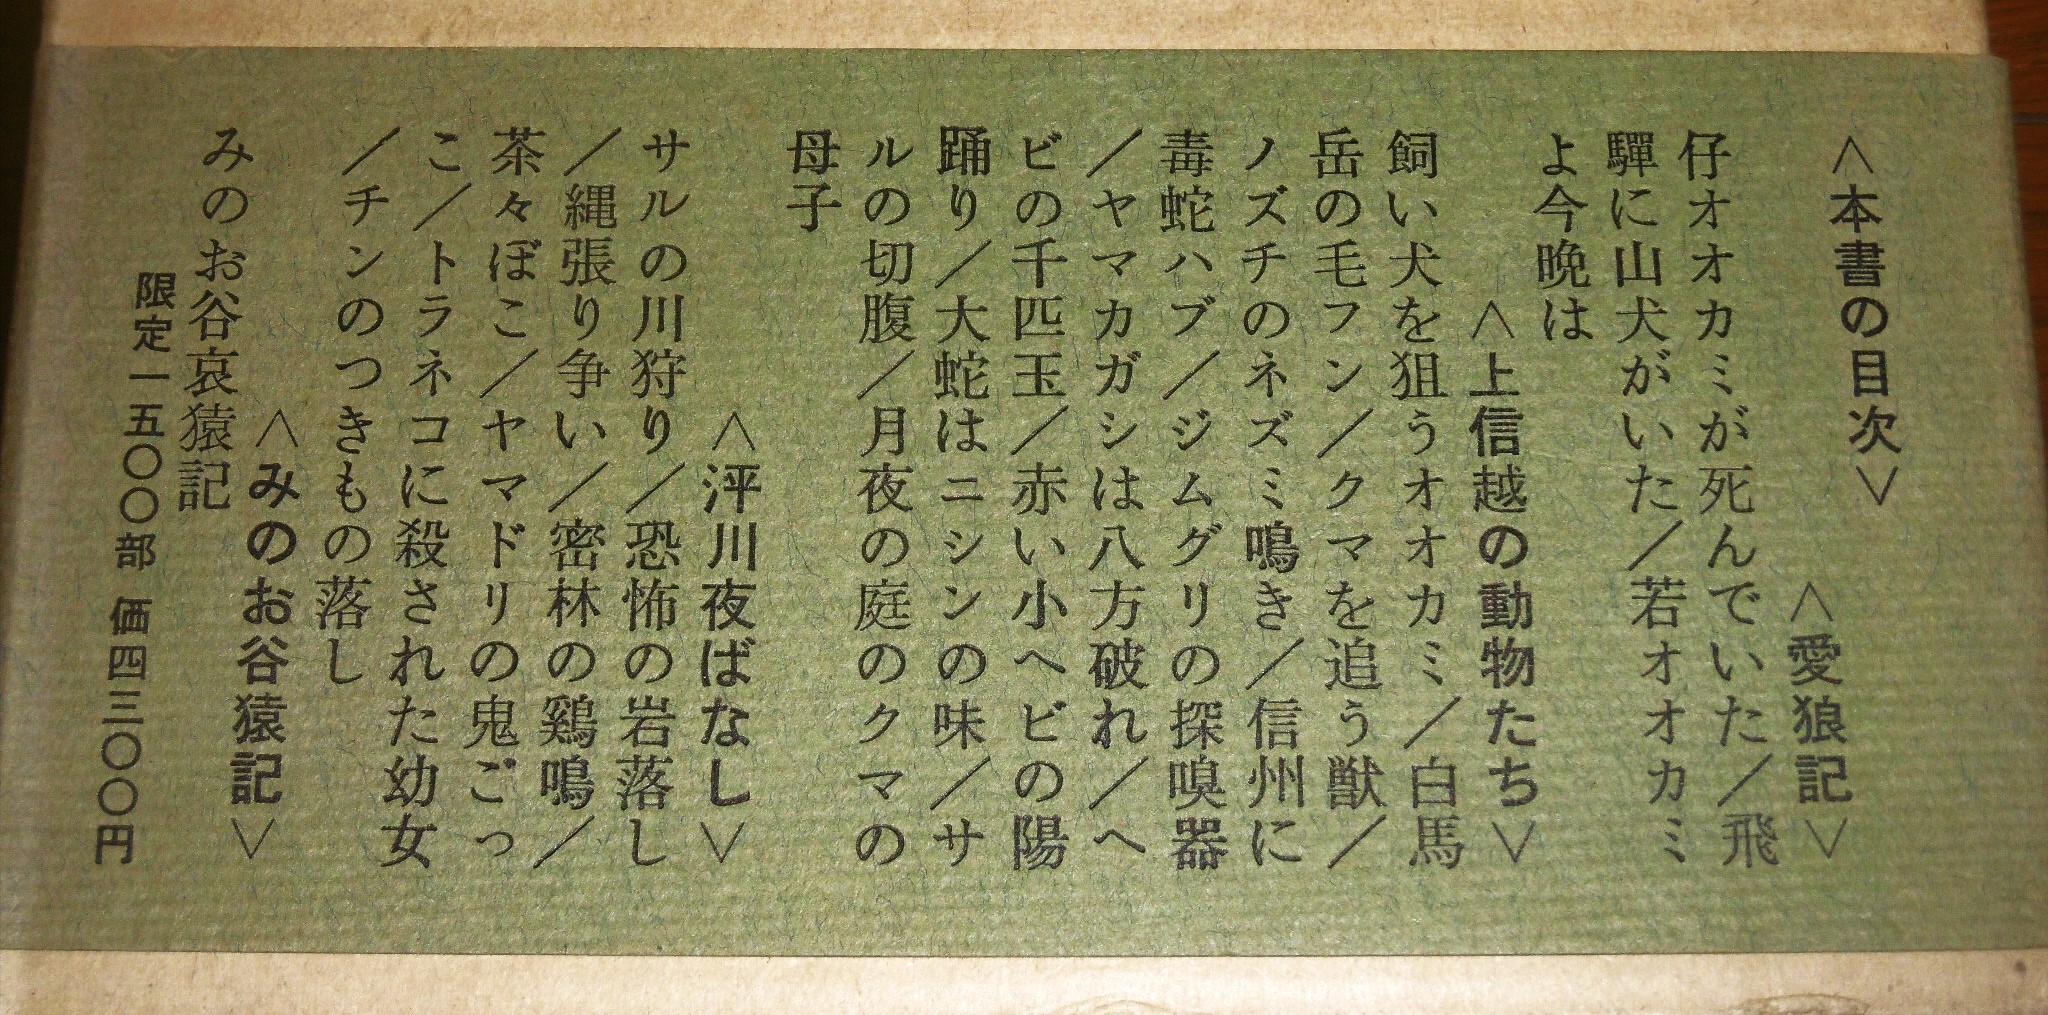 ＜本書の目次＞
＜愛狼記＞
仔オオカミが死んでいた／飛
驒に山犬がいた／若オオカミ
よ今晩は
＜上信越の動物たち＞
飼い犬を狙うオオカミ／白馬
岳の毛フン／クマを追う獣／
ノズチのネズミ鳴き／信州に
毒蛇ハブ／ジムグリの探嗅器
／ヤマカガシは八方破れ／ヘ
ビの千匹玉／赤い小ヘビの陽
踊り／大蛇はニシンの味／サ
ルの切腹／月夜の庭のクマの
母子
＜泙川夜ばなし＞
サルの川狩り／恐怖の岩落し
／縄張り争い／密林の鶏鳴／
茶々ぼこ／ヤマドリの鬼ごっ
こ／トラネコに殺された幼女
／チンのつきもの落し
＜みのお谷猿記＞
みのお谷哀猿記
限定一五〇〇部 価四三〇〇円